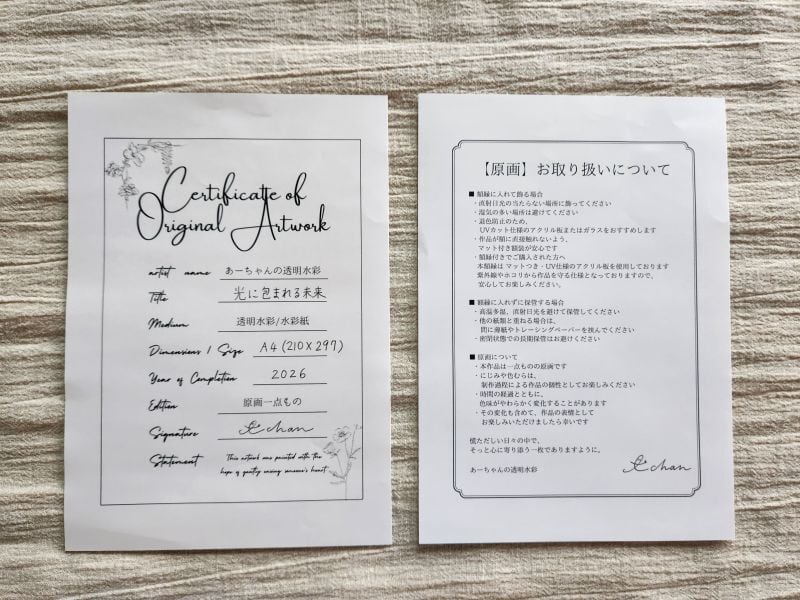 Certificate of
Original Artwork
artist name あーちゃんの透明水彩
Title 光に包まれる未来
Medium 透明水彩/水彩紙
Dimensions / Size A4(210×297)
Year of Completion 2026
Edition 原画一点もの
Signature chan
Statement This artwork was painted with the
hope of gently easing someone's heart.
【原画】お取り扱いについて
■ 額縁に入れて飾る場合
・直射日光の当たらない場所に飾ってください
・湿気の多い場所は避けてください
・退色防止のため、
UVカット仕様のアクリル板またはガラスをおすすめします
・作品が額に直接触れないよう、
マット付き額装が安心です
・額縁付きでご購入された方へ
本額縁は マットつき・UV仕様のアクリル板を使用しております
紫外線やホコリから作品を守る仕様となっておりますので、
安心してお楽しみください。
■ 額縁に入れずに保管する場合
・高温多湿、直射日光を避けて保管してください
・他の紙類と重ねる場合は、
間に薄紙やトレーシングペーパーを挟んでください
・密閉状態での長期保管はお避けください
■ 原画について
・本作品は一点ものの原画です
・にじみや色むらは、
制作過程による作品の個性としてお楽しみください
・時間の経過とともに、
色味がやわらかく変化することがあります
・その変化も含めて、作品の表情として
お楽しみいただけましたら幸いです
慌ただしい日々の中で、
そっと心に寄り添う一枚でありますように。
あーちゃんの透明水彩 chan